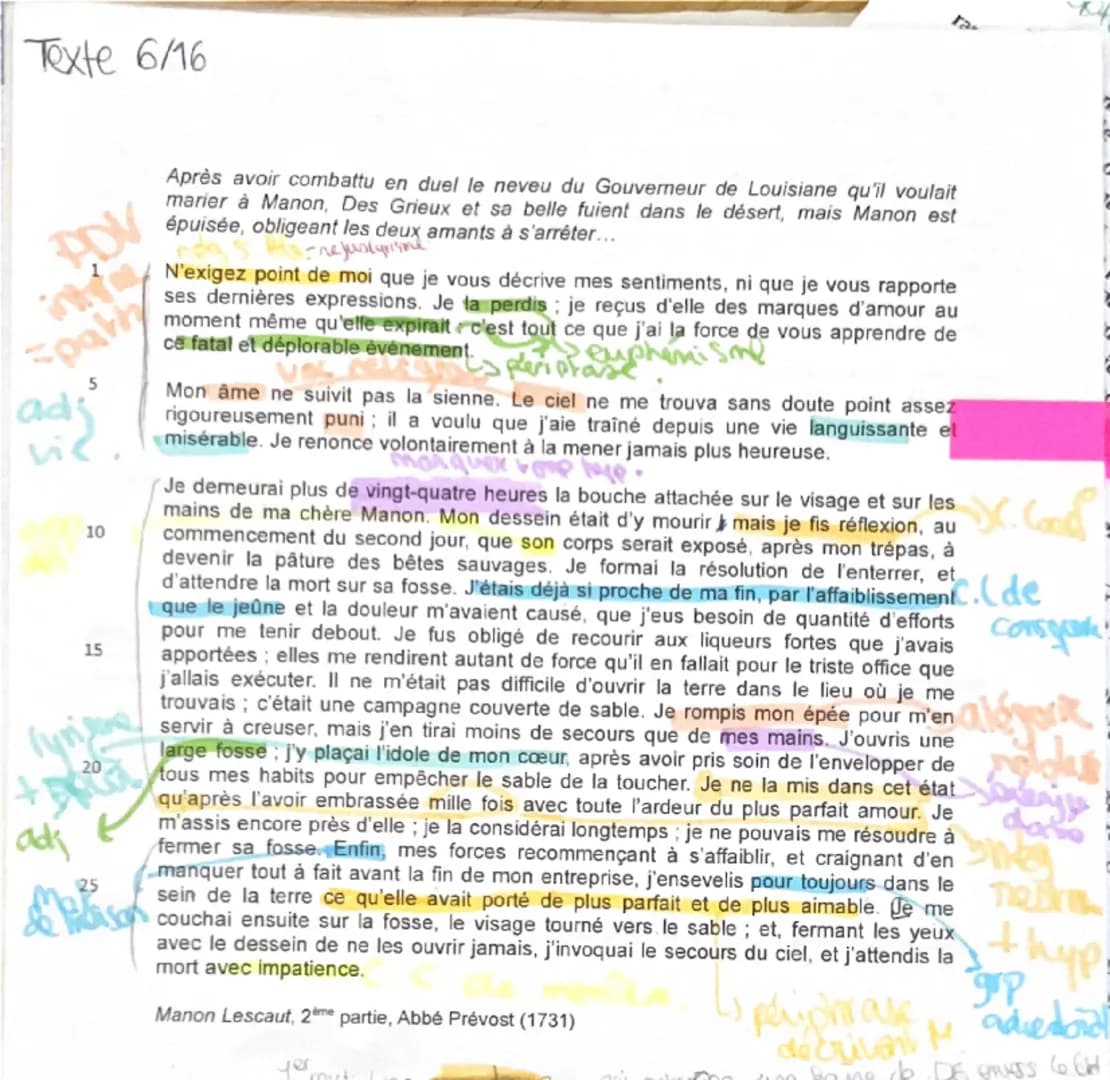 Texte 6/16
Après avoir combattu en duel le neveu du Gouverneur de Louisiane qu'il voulait
marier à Manon, Des Grieux et sa belle fuient dans le désert, mais Manon est
épuisée, obligeant les deux amants à s'arrêter…
PDV
1 N'exigez point de moi que je vous décrive mes sentiments, ni que je vous rapporte
ses dernières expressions. Je la perdis ; je reçus d'elle des marques d'amour au
moment même qu'elle expirait ; c'est tout ce que j'ai la force de vous apprendre de
ce fatal et déplorable événement.
euphémisme
périphrase
5 Mon âme ne suivit pas la sienne. Le ciel ne me trouva sans doute point assez
rigoureusement puni ; il a voulu que j'aie traîné depuis une vie languissante et
misérable. Je renonce volontairement à la mener jamais plus heureuse.
adj
vie.
Je demeurai plus de vingt-quatre heures la bouche attachée sur le visage et sur les
mains de ma chère Manon. Mon dessein était d'y mourir ; mais je fis réflexion, au
10 commencement du second jour, que son corps serait exposé, après mon trépas, à
devenir la pâture des bêtes sauvages. Je formai la résolution de l'enterrer, et
d'attendre la mort sur sa fosse. J'étais déjà si proche de ma fin, par l'affaiblissement
que le jeûne et la douleur m'avaient causé, que j'eus besoin de quantité d'efforts
pour me tenir debout. Je fus obligé de recourir aux liqueurs fortes que j'avais
15 apportées ; elles me rendirent autant de force qu'il en fallait pour le triste office que
j'allais exécuter. Il ne m'était pas difficile d'ouvrir la terre dans le lieu où je me
trouvais ; c'était une campagne couverte de sable. Je rompis mon épée pour m'en
servir à creuser, mais j'en tirai moins de secours que de mes mains. J'ouvris une
large fosse ; j'y plaçai l'idole de mon cœur, après avoir pris soin de l'envelopper de
20 tous mes habits pour empêcher le sable de la toucher. Je ne la mis dans cet état
qu'après l'avoir embrassée mille fois avec toute l'ardeur du plus parfait amour. Je
m'assis encore près d'elle ; je la considérai longtemps ; je ne pouvais me résoudre à
fermer sa fosse. Enfin, mes forces recommençant à s'affaiblir, et craignant d'en
manquer tout à fait avant la fin de mon entreprise, j'ensevelis pour toujours dans le
25 sein de la terre ce qu'elle avait porté de plus parfait et de plus aimable. Je me
couchai ensuite sur la fosse, le visage tourné vers le sable ; et, fermant les yeux
avec le dessein de ne les ouvrir jamais, j'invoquai le secours du ciel, et j'attendis la
mort avec impatience.
C.C de
adj
+ hyp
grp
périphrase
décrivant M
Manon Lescaut, 2ème partie, Abbé Prévost (1731)